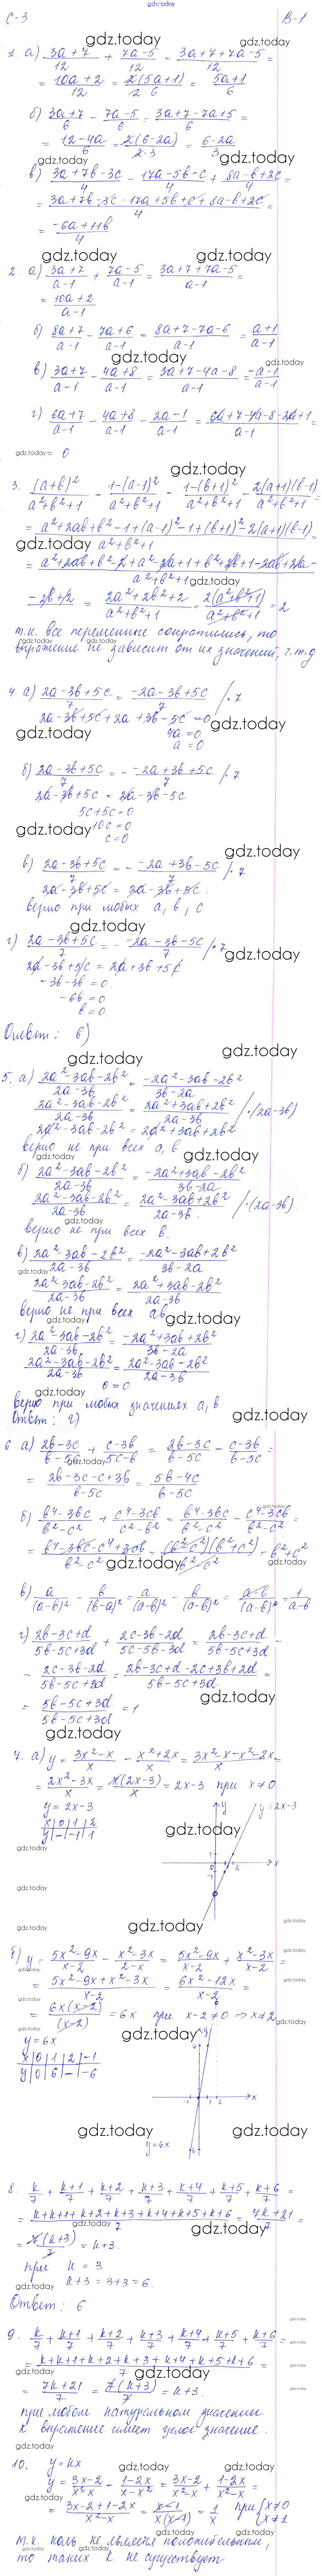 gdz.today
С-3 В-1
1. а) (3a+7)/12 + (7a-5)/12 = (3a+7+7a-5)/12 =
= (10a+2)/12 = 2(5a+1)/(2·6) = (5a+1)/6
б) (3a+7)/6 - (7a-5)/6 = (3a+7-7a+5)/6 =
= (12-4a)/6 = 2(6-2a)/(2·3) = (6-2a)/3
в) (3a+7b-3c)/4 - (17a-5b-c)/4 + (8a-b+2c)/4 =
= (3a+7b-3c-17a+5b+c+8a-b+2c)/4 =
= (-6a+11b)/4
2. а) (3a+7)/(a-1) + (7a-5)/(a-1) = (3a+7+7a-5)/(a-1) =
= (10a+2)/(a-1)
б) (8a+7)/(a-1) - (7a+6)/(a-1) = (8a+7-7a-6)/(a-1) = (a+1)/(a-1)
в) (3a+7)/(a-1) - (4a+8)/(a-1) = (3a+7-4a-8)/(a-1) = (-a-1)/(a-1)
г) (6a+7)/(a-1) - (4a+8)/(a-1) - (2a-1)/(a-1) = (6a+7-4a-8-2a+1)/(a-1) =
= 0
3. (a+b)²/(a²+b²+1) - (1-(a-1)²)/(a²+b²+1) - (1-(b+1)²)/(a²+b²+1) - 2(a+1)(b-1)/(a²+b²+1) =
= (a²+2ab+b²-1+(a-1)²-1+(b+1)²-2(a+1)(b-1))/(a²+b²+1)
= (a²+2ab+b²-2+a²-2a+1+b²+2b+1-2ab+2a-
-2b+2)/(a²+b²+1) = (2a²+2b²+2)/(a²+b²+1) = 2(a²+b²+1)/(a²+b²+1) = 2
т.к. все переменные сократились, то
выражение не зависит от их значений, ч.т.д
4 а) (2a-3b+5c)/7 = (-2a-3b+5c)/7 /·7
2a-3b+5c+2a+3b-5c=0
4a=0
a=0
б) (2a-3b+5c)/7 = - (-2a+3b+5c)/7 /·7
2a-3b+5c = 2a-3b-5c
5c+5c=0
10c=0
c=0
в) (2a-3b+5c)/7 = - (-2a+3b-5c)/7 /·7
2a-3b+5c = 2a-3b+5c.
верно при любых a, b, c
г) (2a-3b+5c)/7 = - (-2a-3b-5c)/7 /·7
2a-3b+5c = 2a+3b+5c
-3b-3b=0.
-6b=0
b=0.
Ответ: в)
5. а) (2a²-3ab-2b²)/(2a-3b) = (-2a²-3ab-2b²)/(3b-2a)
(2a²-3ab-2b²)/(2a-3b) = (2a²+3ab+2b²)/(2a-3b) /·(2a-3b)
2a²-3ab-2b² = 2a²+3ab+2b²
верно не при всех a, b
б) (2a²-3ab-2b²)/(2a-3b) = (-2a²+3ab-2b²)/(3b-2a)
(2a²-3ab-2b²)/(2a-3b) = (2a²-3ab+2b²)/(2a-3b). /·(2a-3b)
верно не при всех b.
в) (2a²-3ab-2b²)/(2a-3b) = (-2a²-3ab+2b²)/(3b-2a)
(2a²-3ab-2b²)/(2a-3b) = (2a²+3ab-2b²)/(2a-3b)
верно не при всех ab
г) (2a²-3ab-2b²)/(2a-3b) = (-2a²+3ab+2b²)/(3b-2a)
(2a²-3ab-2b²)/(2a-3b) = (2a²-3ab-2b²)/(2a-3b)
0=0
верно при любых значениях a, b
Ответ: г)
6. а) (2b-3c)/(b-5c) + (c-3b)/(5c-b) = (2b-3c)/(b-5c) - (c-3b)/(b-5c) =
= (2b-3c-c+3b)/(b-5c) = (5b-4c)/(b-5c)
б) (b⁴-3bc)/(b²-c²) + (c⁴-3cb)/(c²-b²) = (b⁴-3bc)/(b²-c²) - (c⁴-3cb)/(b²-c²) =
= (b⁴-3bc-c⁴+3cb)/(b²-c²) = (b²-c²)(b²+c²)/(b²-c²) = b²+c²
в) a/(a-b)² - b/(b-a)² = a/(a-b)² - b/(a-b)² = (a-b)/(a-b)² = 1/(a-b)
г) (2b-3c+d)/(5b-5c+3d) + (2c-3b-2d)/(5c-5b-3d) = (2b-3c+d)/(5b-5c+3d) -
- (2c-3b-2d)/(5b-5c+3d) = (2b-3c+d-2c+3b+2d)/(5b-5c+3d) =
= (5b-5c+3d)/(5b-5c+3d) = 1
7. а) y = (3x²-x)/x - (x²+2x)/x = (3x²-x-x²-2x)/x =
= (2x²-3x)/x = x(2x-3)/x = 2x-3 при x≠0
y=2x-3
x|0|1|2
y|-|-1|1
y=2x-3
б) y = (5x²-9x)/(x-2) - (x²-3x)/(2-x) = (5x²-9x)/(x-2) + (x²-3x)/(x-2) =
= (5x²-9x+x²-3x)/(x-2) = (6x²-12x)/(x-2) =
= 6x(x-2)/(x-2) = 6x при x-2≠0 ⇒ x≠2
y=6x
x|0|1|2|-1
y|0|6|-|-6
y=6x
8. k/7 + (k+1)/7 + (k+2)/7 + (k+3)/7 + (k+4)/7 + (k+5)/7 + (k+6)/7 =
= (k+k+1+k+2+k+3+k+4+k+5+k+6)/7 = (7k+21)/7 =
= 7(k+3)/7 = k+3.
при k=3
k+3=3+3=6.
Ответ: 6
9. k/7 + (k+1)/7 + (k+2)/7 + (k+3)/7 + (k+4)/7 + (k+5)/7 + (k+6)/7 =
= (k+k+1+k+2+k+3+k+4+k+5+k+6)/7 =
= (7k+21)/7 = 7(k+3)/7 = k+3.
при любом натуральном значении
k выражение имеет целое значение.
10. y=kx
y = (3x-2)/(x²-x) - (1-2x)/(x-x²) = (3x-2)/(x²-x) + (1-2x)/(x²-x) =
= (3x-2+1-2x)/(x²-x) = (x-1)/(x(x-1)) = 1/x при {x≠0 x≠1
т.к. коль не является положительным,
то таких k не существует